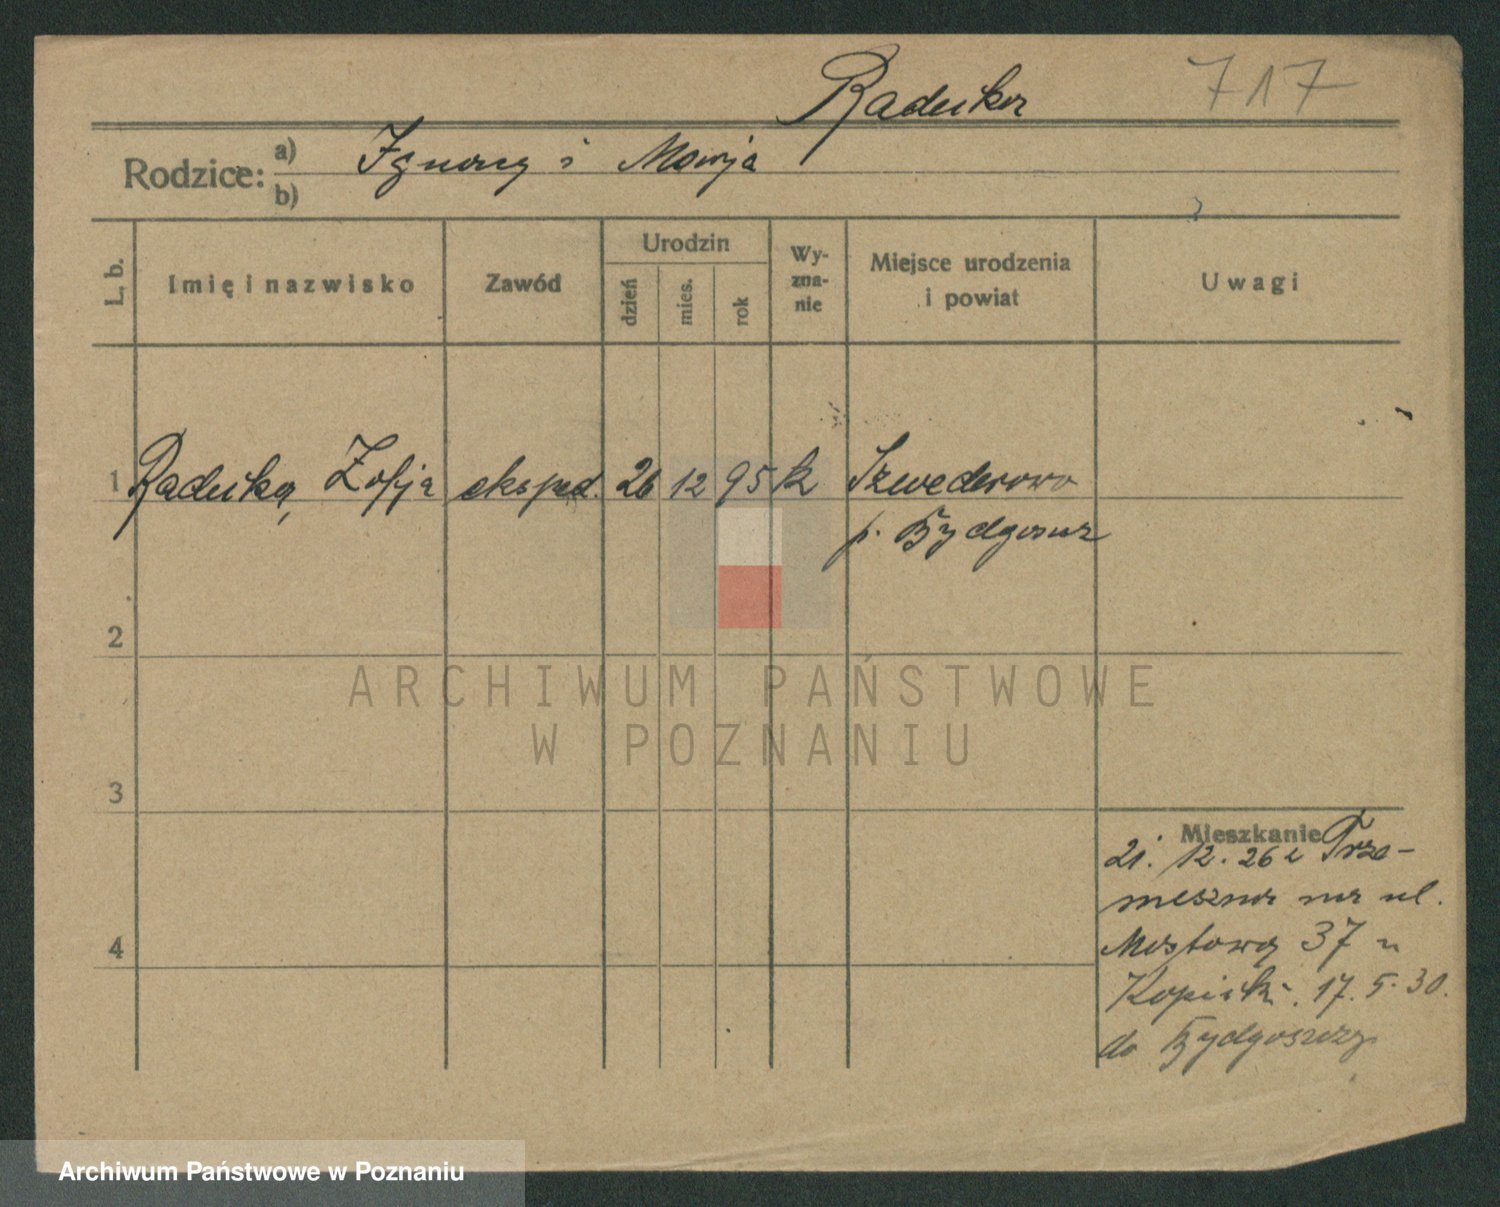 Raduka 717
Rodzice: a) Ignacy i Marja
b)
L. b. Imię i nazwisko Zawód Urodzin dzień mies. rok Wy-zna-nie Miejsce urodzenia i powiat Uwagi
1 Raduka, Zofja eksped. 26 12 95 k Szwederowo
p. Bydgoszcz
2
3
Mieszkanie
21. 12. 26 z Trze-
meszna na ul.
4 Mostową 37 u
17. 5. 30.
do Bydgoszczy
ARCHIWUM PAŃSTWOWE
W POZNANIU
Archiwum Państwowe w Poznaniu